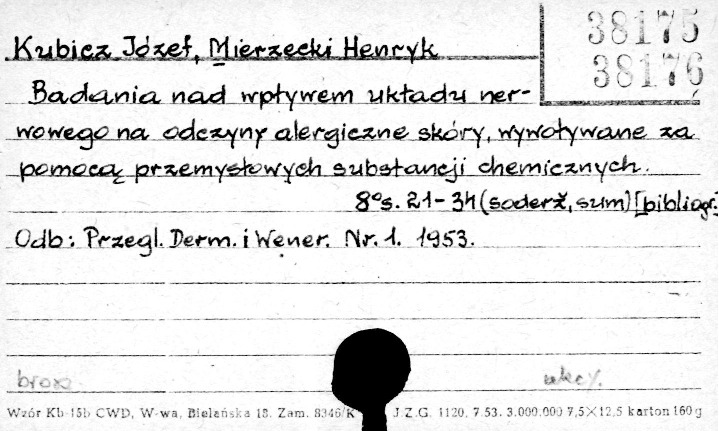 38175
38176
Kubicz Józef, Mierzecki Henryk
Badania nad wpływem układu ner-
wowego na odczyny alergiczne skóry, wywoływane za
pomocą przemysłowych substancji chemicznych.
8° s. 21-34 (soderž, sum) [bibliogr.]
Odb: Przegl. Derm. i Wener. Nr. 1. 1953.
brosz.
Wzór Kb-15b CWD, W-wa, Bielańska 18. Zam. 8346/K J.Z.G. 1120. 7.53. 3.000.000 7,5×12,5 karton 160 g